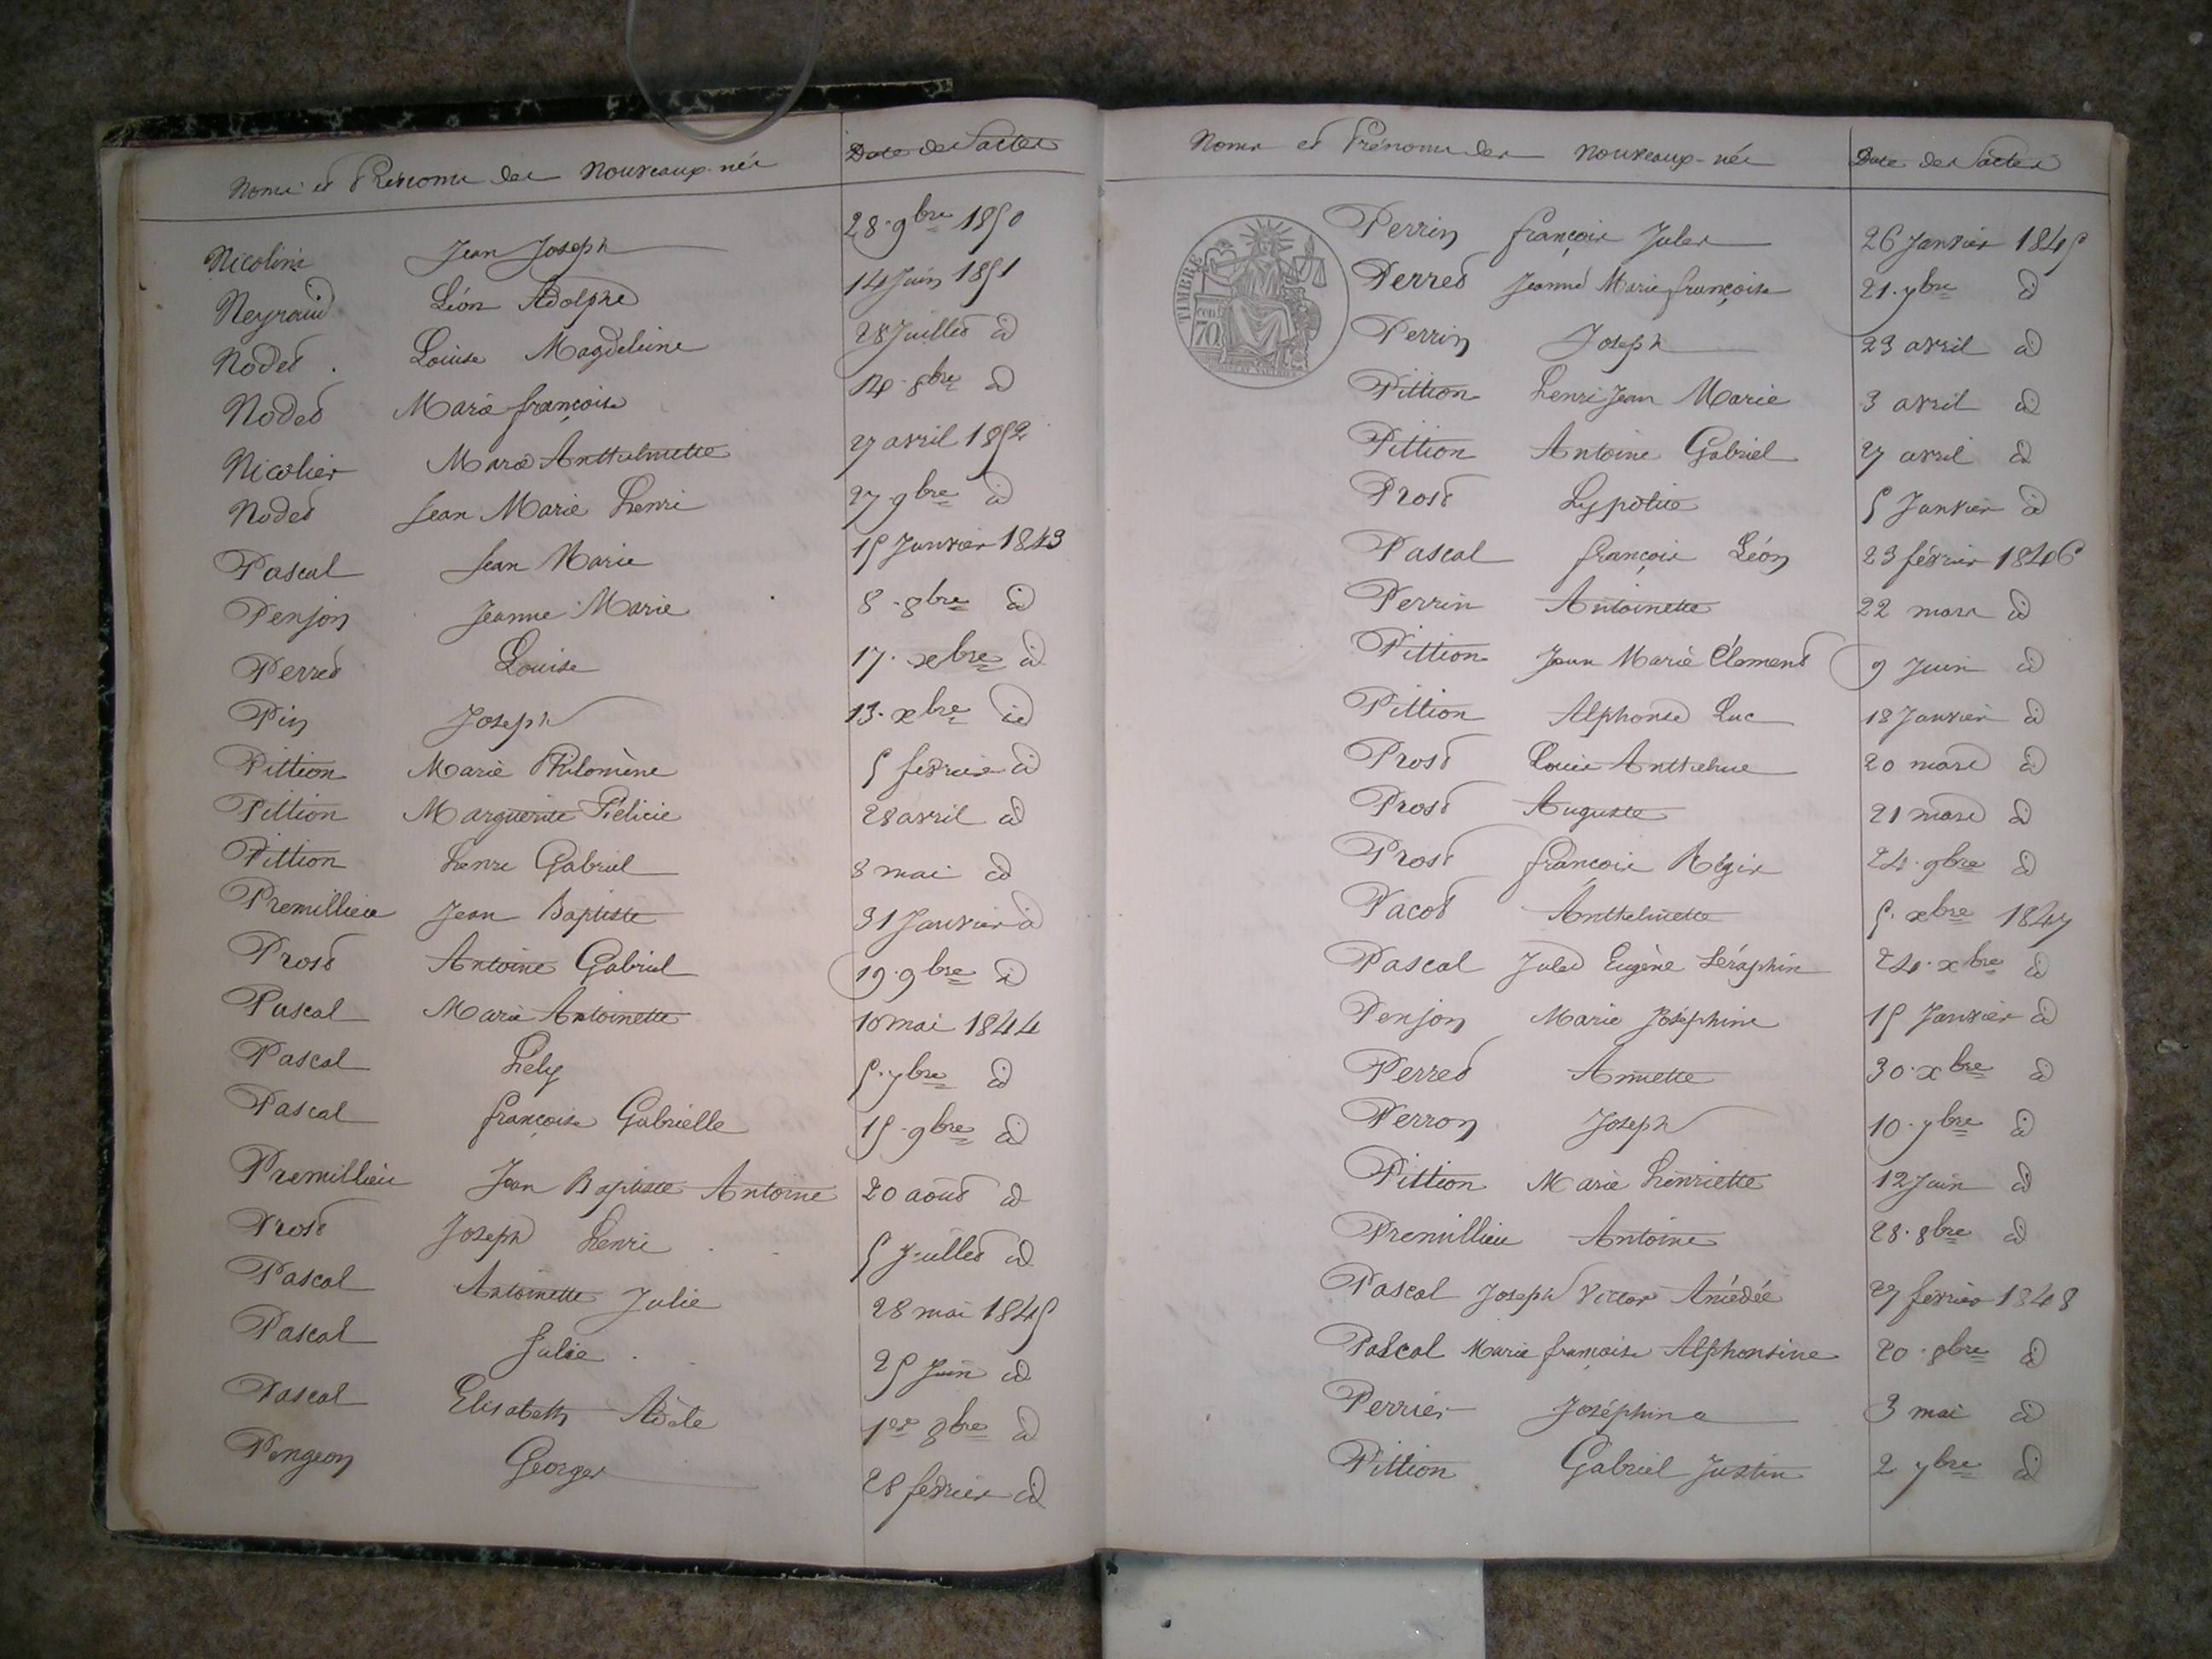 Noms et Prénoms des Nouveaux-nés Date des actes
Nicolin Jean Joseph 28 9bre 1850
Neyraud Léon Adolphe 14 Juin 1851
Nodet Louise Magdeleine 28 Juillet id
Nodet Marie françoise 14 8bre id
Nicolier Marie Anthelmette 27 avril 1852
Nodet Jean Marie henri 27 9bre id
Pascal Jean Marie 15 Janvier 1843
Penjon Jeanne Marie 8 8bre id
Perret Louise 17 xbre id
Pin Joseph 13 xbre id
Pittion Marie Philomène 5 fevrier id
Pittion Marguerite Félicie 28 avril id
Pittion henri Gabriel 8 mai id
Premillieu Jean Baptiste 31 Janvier id
Prost Antoine Gabriel 19 9bre id
Pascal Marie Antoinette 10 mai 1844
Pascal hély 5 7bre id
Pascal françoise Gabrielle 15 9bre id
Premillieu Jean Baptiste Antoine 20 août id
Prost Joseph henri 5 Juillet id
Pascal Antoinette Julie 28 mai 1845
Pascal Julie 25 Juin id
Pascal Elisabeth Adèle 1er 8bre id
Pengeon Georges 28 fevrier id
Noms et Prénoms des nouveaux-nés Date des actes
TIMBRE
70
Perrin françois Jules 26 Janvier 1845
Perret Jeanne Marie françoise 21 7bre id
Perrin Joseph 23 avril id
Pittion henri Jean Marie 3 avril id
Pittion Antoine Gabriel 27 avril id
Prost 5 Janvier id
Pascal françois Léon 23 février 1846
Perrin Antoinette 22 mars id
Pittion Jean Marie Clément 9 Juin id
Pittion Alphonse Luc 18 Janvier id
Prost Louis Anthelme 20 mars id
Prost Auguste 21 mars id
Prost françois Régis 24 9bre id
Pacot Anthelmette 5 xbre 1847
Pascal Jules Eugène Séraphin 24 xbre id
Penjon Marie Joséphine 15 Janvier id
Perret Annette 30 xbre id
Perron Joseph 10 7bre id
Pittion Marie henriette 12 Juin id
Premillieu Antoine 28 8bre id
Pascal Joseph Victor Amédée 27 février 1848
Pascal Marie françoise Alphonsine 20 8bre id
Perrier Joséphine 3 mai id
Pittion Gabriel Justin 2 7bre id